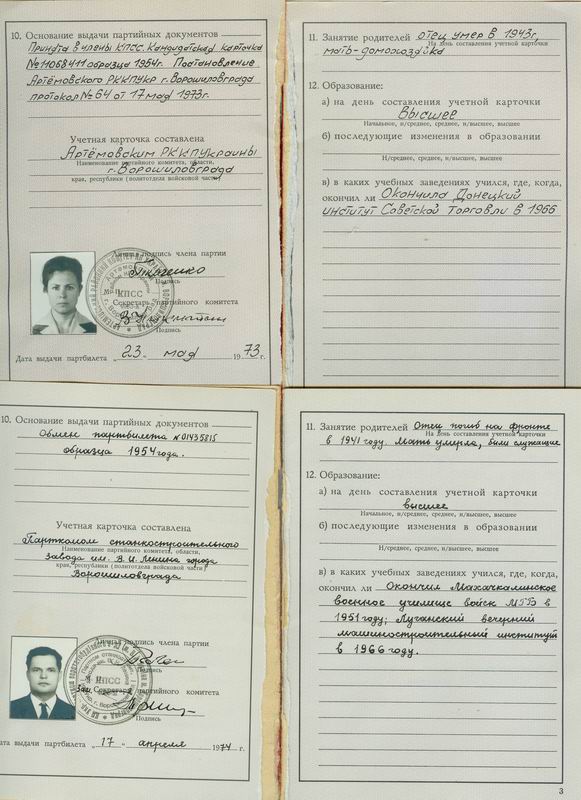 10. Основание выдачи партийных документов
Принята в члены КПСС. Кандидатская карточка
№11068411 образца 1954г. Постановление
Артёмовского РККПУкр г. Ворошиловграда
протокол №64 от 17 мая 1973г.
Учетная карточка составлена
Артёмовским РК КПУкраины
Наименование партийного комитета, области,
г. Ворошиловграда
края, республики (политотдела войсковой части)
Личная подпись члена партии
Подпись
М.П.
КПСС
Секретарь партийного комитета
Подпись
Дата выдачи партбилета „23" мая 1973 г.
11. Занятие родителей отец умер в 1943г,
На день составления учетной карточки
мать-домохозяйка
12. Образование:
а) на день составления учетной карточки
Высшее
Начальное, н/среднее, среднее, н/высшее, высшее
б) последующие изменения в образовании
Н/среднее, среднее, н/высшее, высшее
в) в каких учебных заведениях учился, где, когда,
окончил ли Окончила Донецкий
институт Советской Торговли в 1966
10. Основание выдачи партийных документов
Обмен партбилета №01435815
образца 1954 года.
Учетная карточка составлена
Парткомом станкостроительного
Наименование партийного комитета, области,
завода им. В. И. Ленина города
края, республики (политотдела войсковой части)
Ворошиловграда
Личная подпись члена партии
Подпись
КПСС
Зам. Секретарь партийного комитета
Подпись
Дата выдачи партбилета „17" апреля 1974 г.
11. Занятие родителей Отец погиб на фронте
На день составления учетной карточки
в 1941 году. Мать умерла, были служащие
12. Образование:
а) на день составления учетной карточки
высшее
Начальное, н/среднее, среднее, н/высшее, высшее
б) последующие изменения в образовании
Н/среднее, среднее, н/высшее, высшее
в) в каких учебных заведениях учился, где, когда,
окончил ли Окончил Махачкалинское
военное училище войск МГБ в
1951 году; Луганский вечерний
машиностроительный институт
в 1966 году.
3